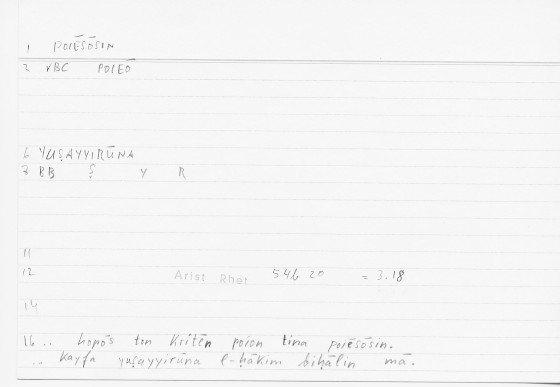 1 POIĒSŌSIN
2 VBC POIEŌ
6 YUṢAYYIRŪNA
7 BB Ṣ Y R
11
12 Arist Rhet 54b 20 = 3.18
14
16 .. hopōs ton kritēn poion tina poiēsōsin.
.. kayfa yuṣayyirūna l-ḥākim biḥālin mā.